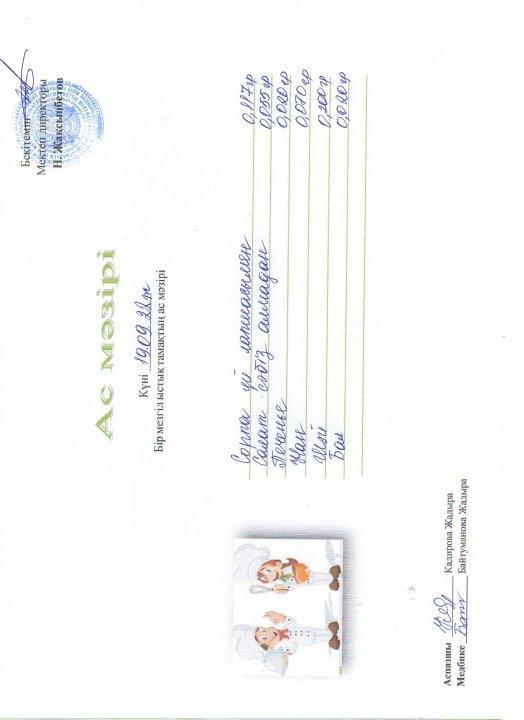 Бекітемін
Мектеп директоры
Н. Жаксынбетов
Ас мәзірі
Күні 19.09.22ж
Бір мезгіл ыстық тамақтың ас мәзірі
Сорпа үй лапшасымен 0,117гр
Салат сәбіз алмадан 0,055 гр
Печенье 0,020 гр
Нан 0,070 гр
Шай 0,200 гр
Бал 0,020 гр
Аспазшы Кадирова Жадыра
Медбике Байтуманова Жадыра